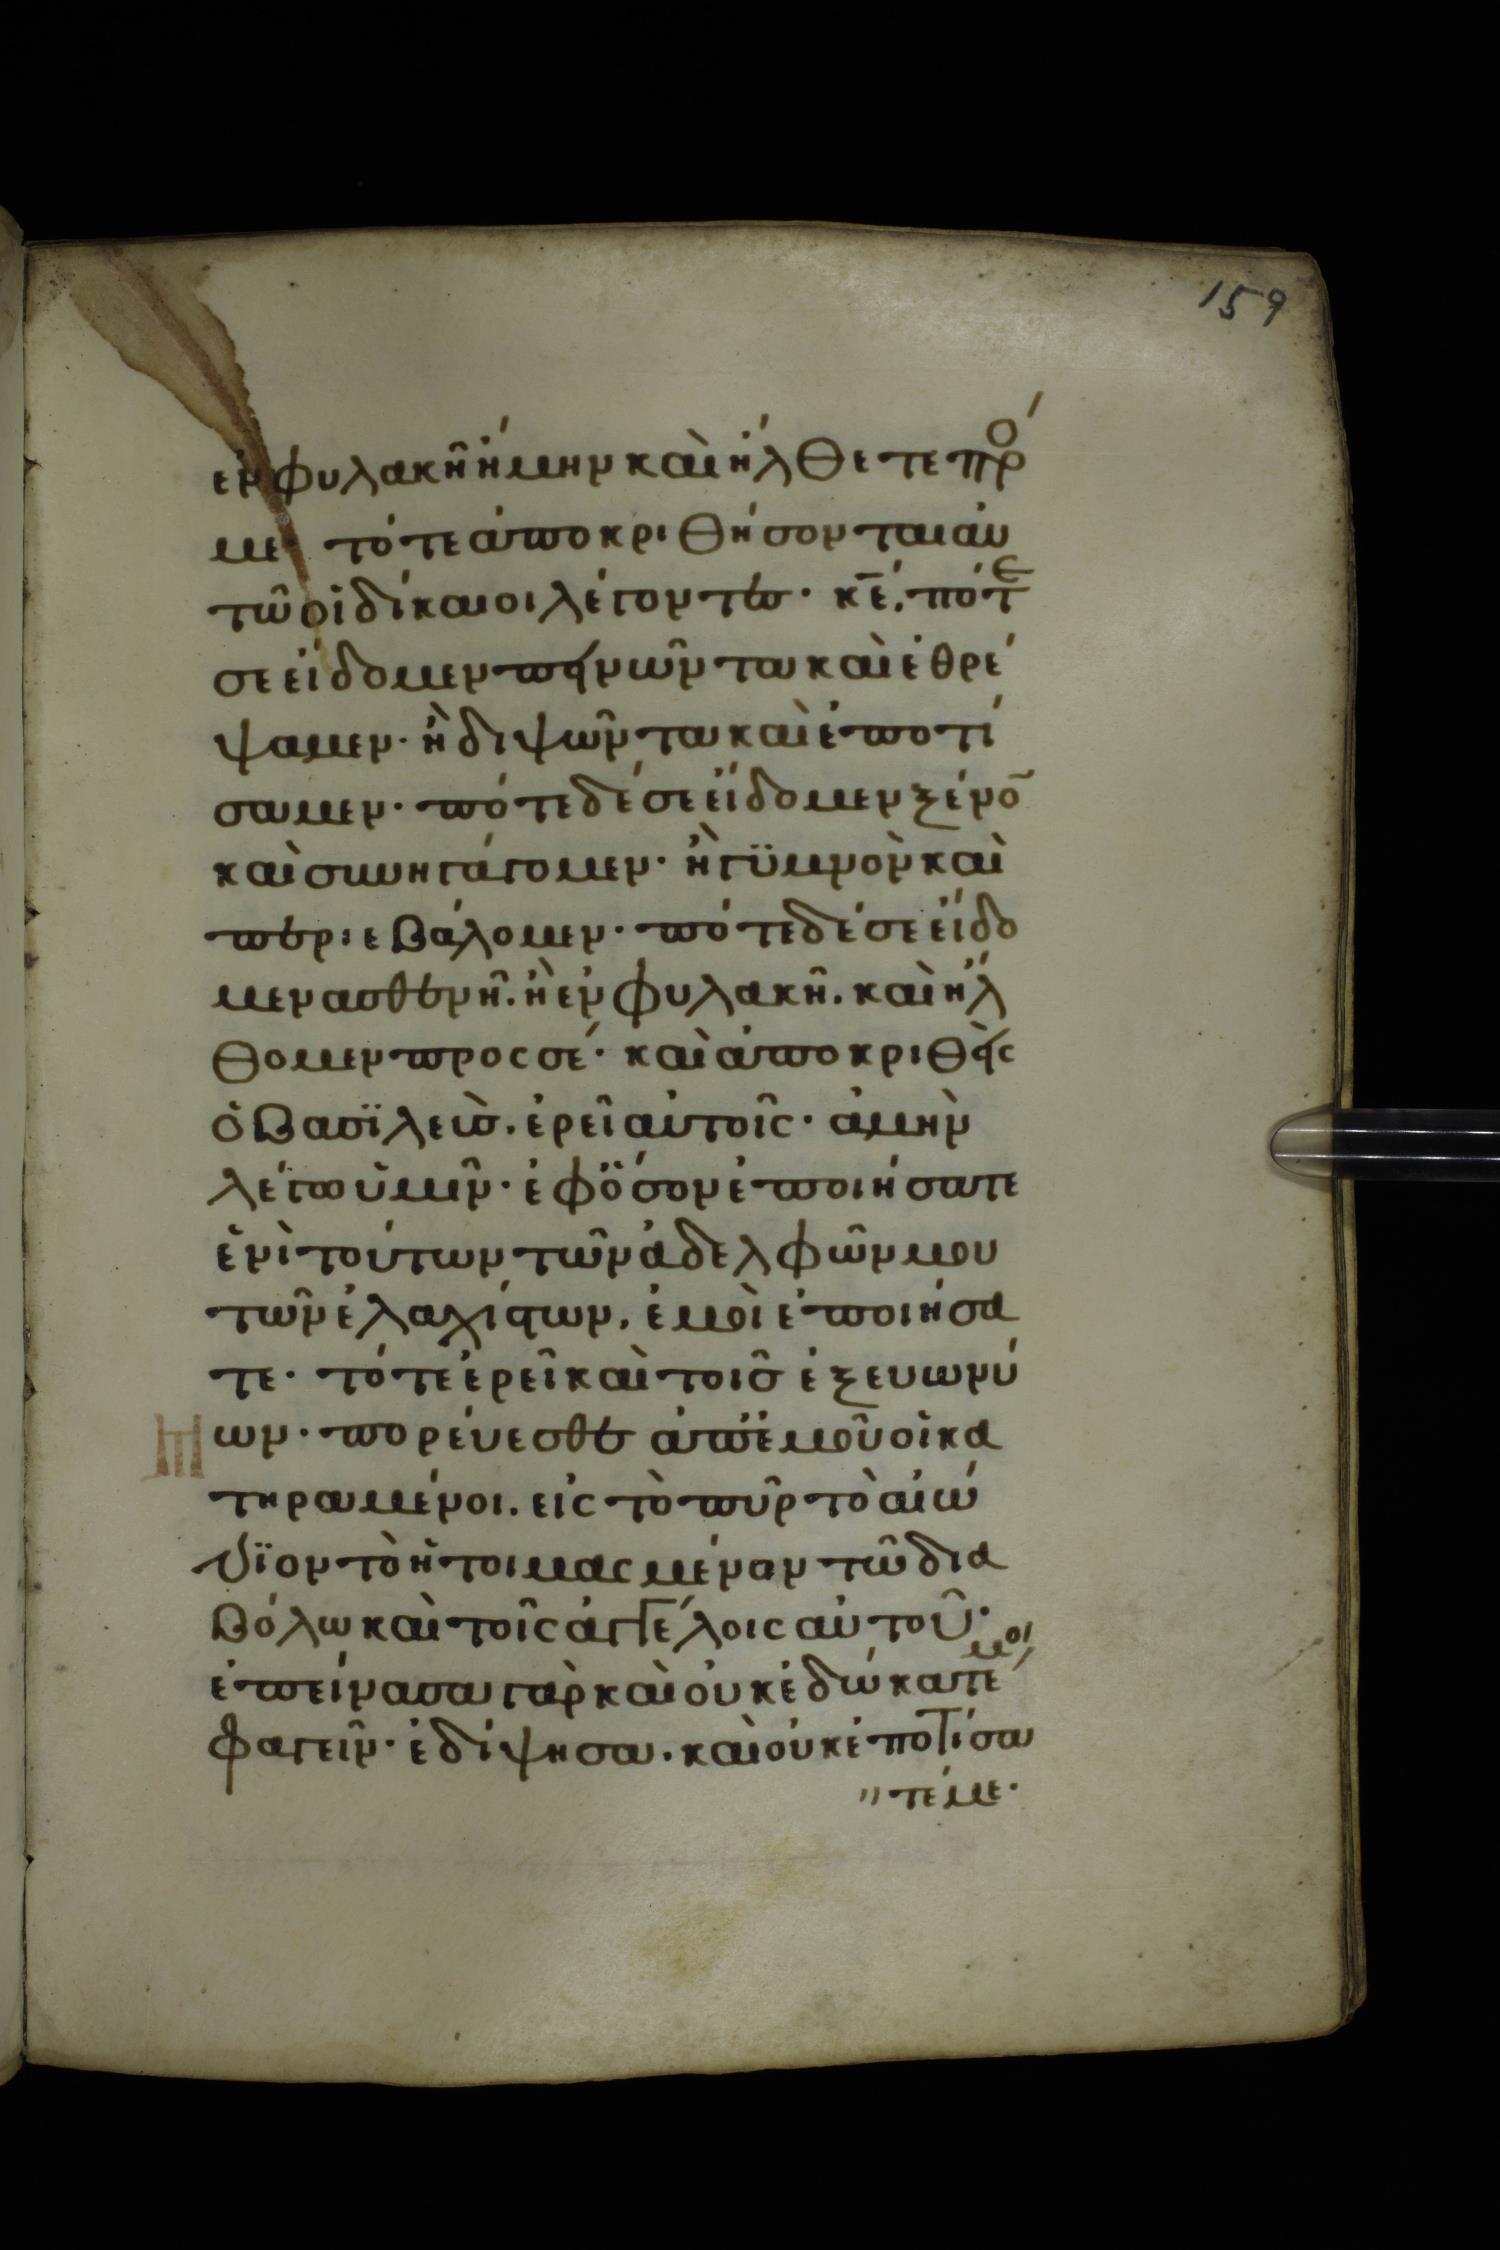 159
ἐν φυλακῆ ἤμην καὶ ἤλθετε πρό
με· τότε ἀποκριθήσονται αὐ
τῶ οἱ δίκαιοι λέγοντες· κε̄, πότε
σε εἴδομεν πεινῶντα καὶ ἐθρέ
ψαμεν· ἢ διψῶντα καὶ ἐποτί
σαμεν· πότε δέ σε εἴδομεν ξένο̄
καὶ συνηγάγομεν· ἢ γϋμνὸν καὶ
περιεβάλομεν· πότε δέ σε εἴδο
μεν ασθενῆ. ἢ ἐν φυλακῆ. καὶ ἤλ
θομεν προς σέ· καὶ ἀποκριθεὶς
ὁ βασϊλεὺς. ἐρεῖ αὐτοῖς· ἀμὴν
λέγω ὑμῖν· ἐφ ὅσον ἐποιήσατε
ἑνὶ τούτων τῶν ἀδελφῶν μου
τῶν ἐλαχίστων. ἐμοὶ ἐποιήσα
τε· τότε ἐρεῖ καὶ τοῖς ἐξ ευωνύ
ων· πορέυεσθε ἀπ ἐμοῦ οἱ κα
τηραμένοι. εἰς τὸ πῦρ τὸ αἰώ
νϊον τὸ ἡτοιμασμένον τῶ δια
βόλω καὶ τοῖς ἀγγέλοις αὐτοῦ·
ἐπείνασα γὰρ καὶ οὐκ ἐδώκατέ μοι
φαγεῖν· ἐδίψησα. καὶ οὐκ ἐποτίσα
〃τέ με·